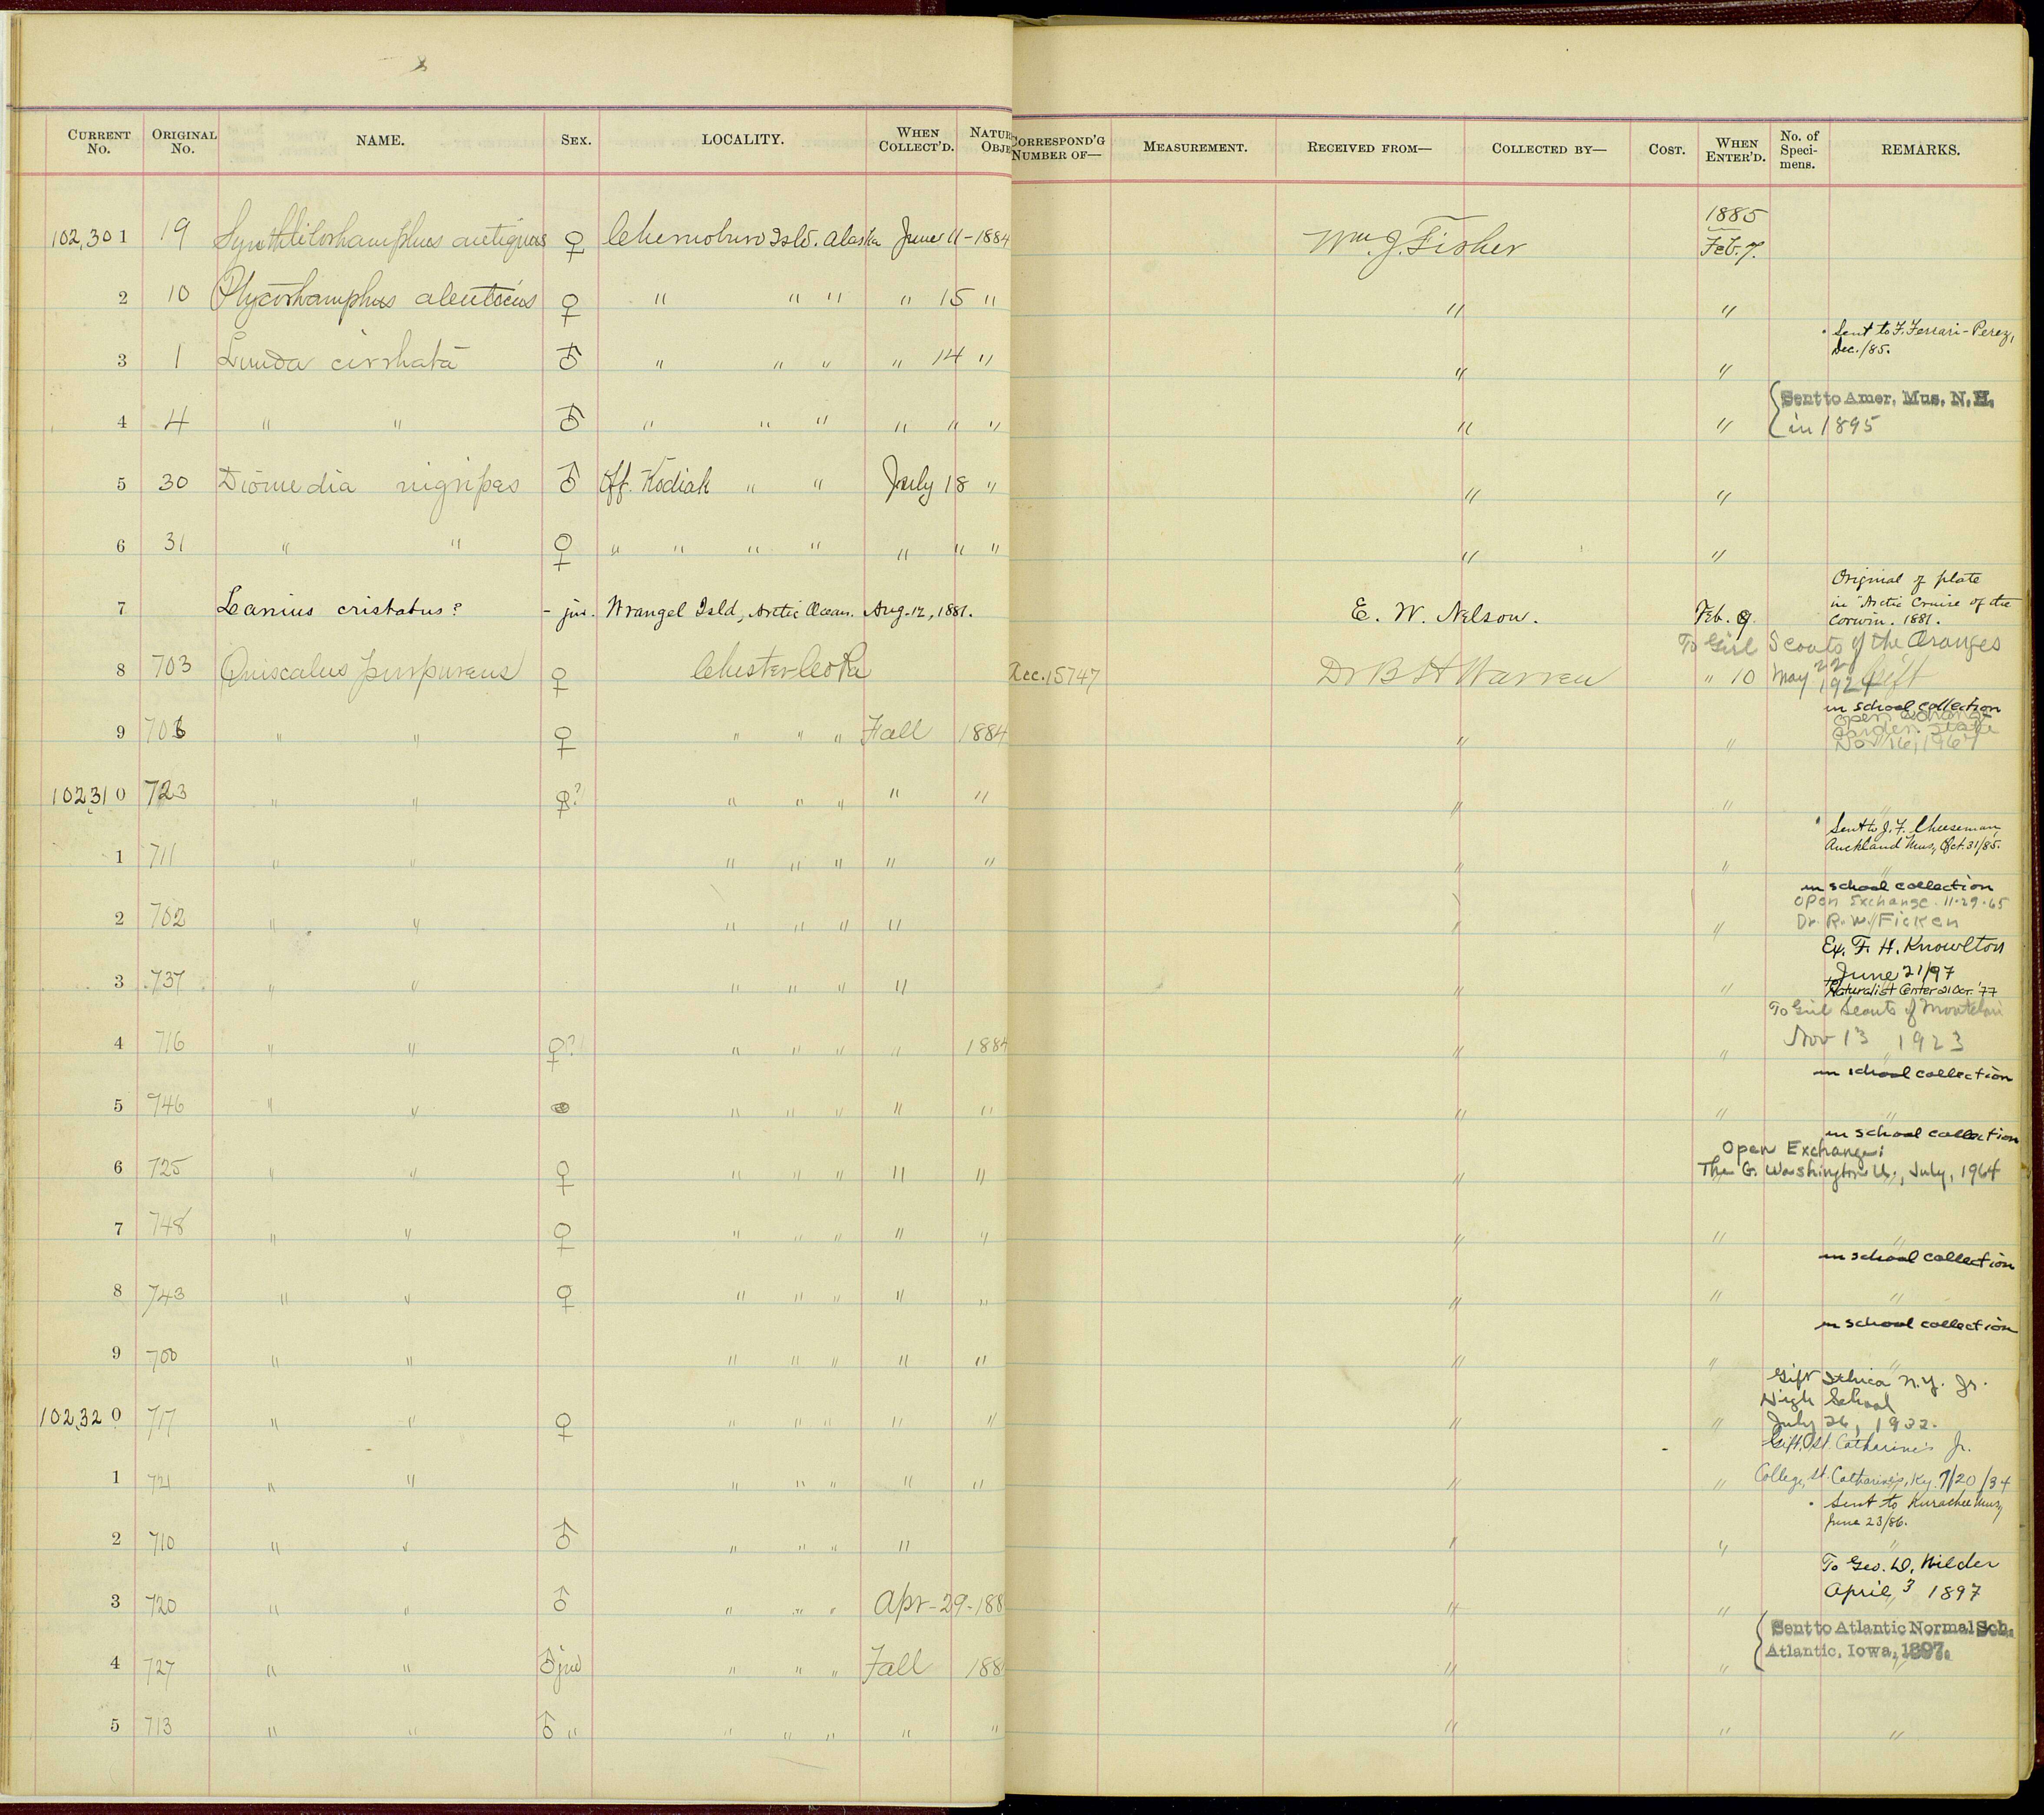 8
CURRENT No. ORIGINAL No. NAME. SEX. LOCALITY. WHEN COLLECT'D. NATUR OBJE CORRESPOND'G NUMBER OF— MEASUREMENT. RECEIVED FROM— COLLECTED BY— COST. WHEN ENTER'D. No. of Speci- mens. REMARKS.
1885
102,301 19 Synthliborhamphus antiquus ♀ Chernobura Isld. Alaska June 11-1884 Wm. J. Fisher Feb. 7.
2 10 Ptycorhamphus aleuticus ♀ " " " " 15 " " "
Sent to F. Ferrari-Perez,
Dec./85.
3 1 Lunda cirrhata ♂ " " " " 14 " " "
Sent to Amer. Mus. N. H.
4 4 " " ♂ " " " " " " " " in 1895
5 30 Diomedia nigripes ♂ Off. Kodiak " " July 18 " " "
6 31 " " ♀ " " " " " " " " "
Original of plate
in "Arctic Cruise of the
7 Lanius cristatus? - juv. Wrangel Isld, Arctic Ocean. Aug. 12, 1881. E. W. Nelson. Feb. 9. Corwin. 1881.
To Girl Scouts of the Oranges
8 703 Quiscalus purpureus ♀ Chester Co Pa Acc. 15747 Dr B H Warren " 10 May 22 1924 Gift
in school collection
open exchange
Garden State
9 708 " " ♀ " " " Fall 1884 " " Nov 16, 1967
102310 723 " " ♀? " " " " " " " "
Sent to J. F. Cheeseman,
Auckland Mus, Oct. 31/85.
1 711 " " " " " " " " " "
in school collection
Open Exchange. 11-29-65
2 702 " " " " " " " " Dr. R. W. Ficken
Ex. F. H. Knowlton
June 21/97
3 737 " " " " " " " " Naturalist Center 21 Oct. '77
To Girl Scouts of Montclair
4 716 " " ♀? " " " " 1884 " " Nov 13 1923
in school collection
5 746 " " " " " " " " " "
in school collection
Open Exchange:
6 725 " " ♀ " " " " " " The G. Washington U., July, 1964
7 748 " " ♀ " " " " " " " "
in school collection
8 743 " " ♀ " " " " " " " "
in school collection
9 700 " " " " " " " " " "
Gift Ithica N.Y. Jr.
High School
102,320 717 " " ♀ " " " " " " " July 26, 1932.
Gift. St. Catharine's Jr.
1 721 " " " " " " " " " College, St. Catharine's, Ky. 7/20/34
Sent to Kurachee Mus,
June 23/86.
2 710 " " ♂ " " " " " " "
To Geo. D. Wilder
April 3 1897
3 720 " " ♂ " " " Apr-29-188 " "
Sent to Atlantic Normal Sch.
Atlantic, Iowa, 1897.
4 727 " " ♂ juv " " " Fall 188 " " "
5 713 " " ♂ " " " " " " " " "